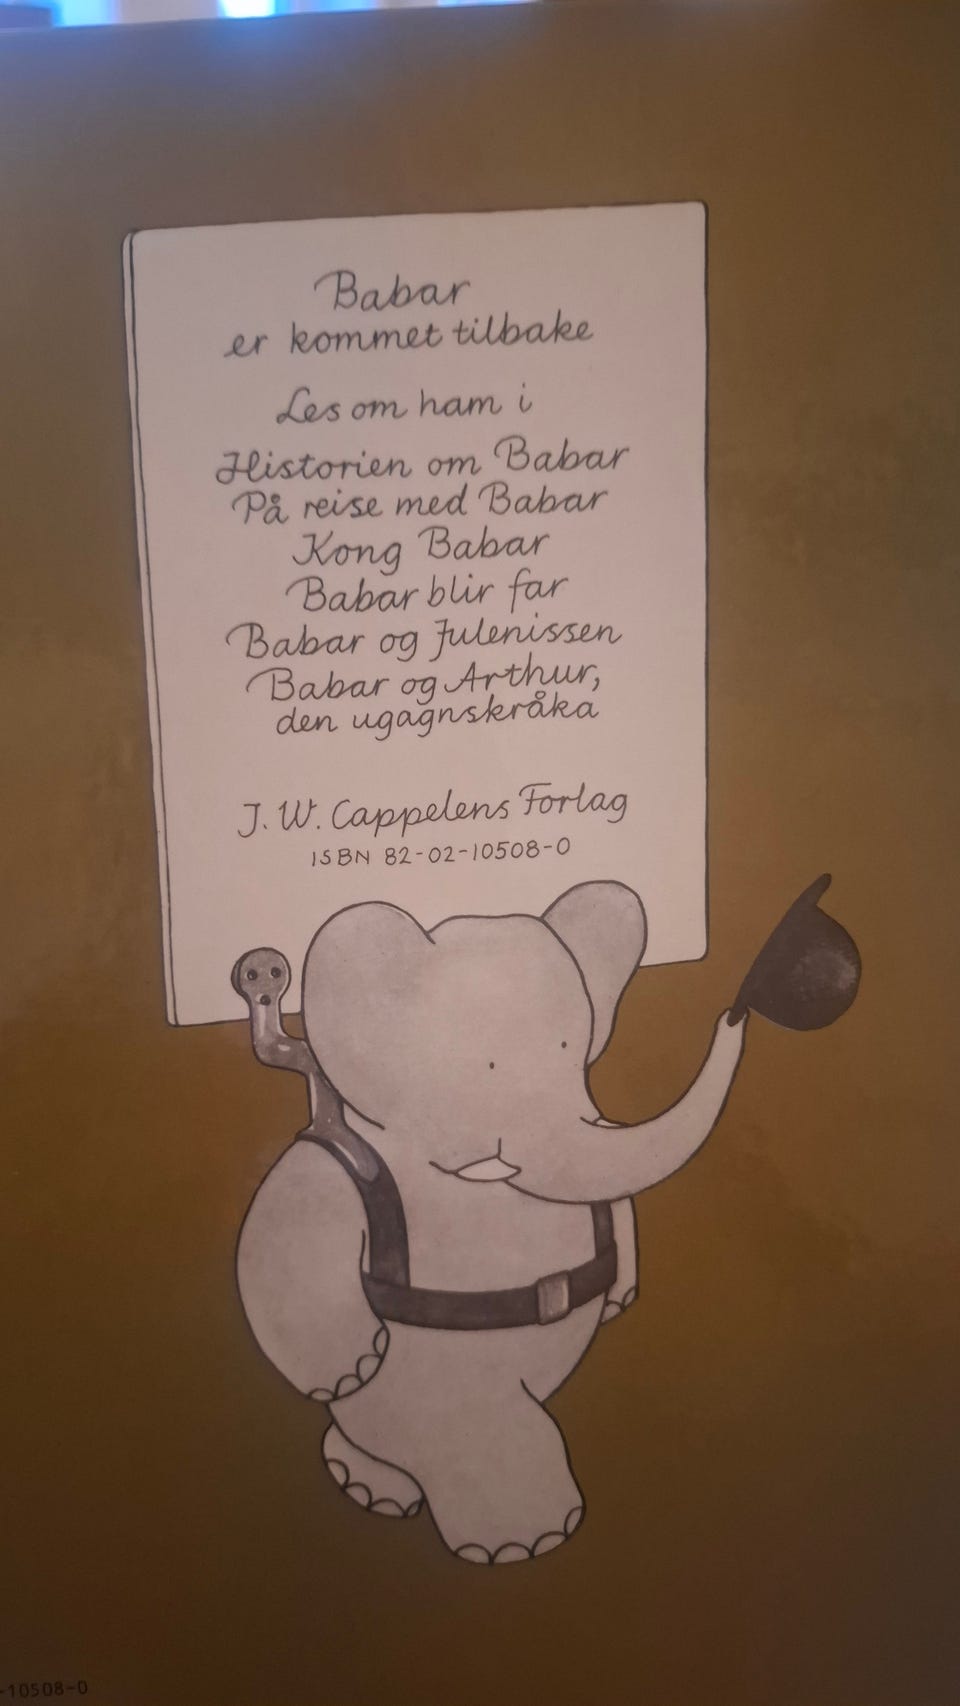 Babar
er kommet tilbake
Les om ham i
Historien om Babar
På reise med Babar
Kong Babar
Babar blir far
Babar og Julenissen
Babar og Arthur,
den ugagnskråka
J. W. Cappelens Forlag
ISBN 82-02-10508-0
-10508-0